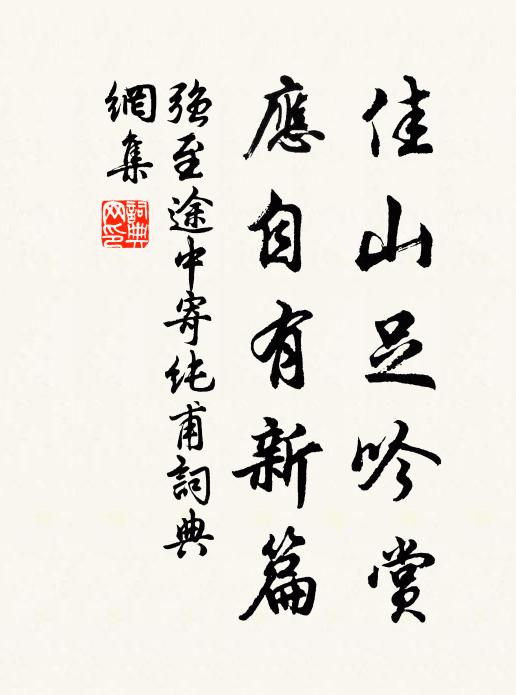 佳山足吟賞
應自有新篇
強至途中寄純甫詞典
網集
詞典網印